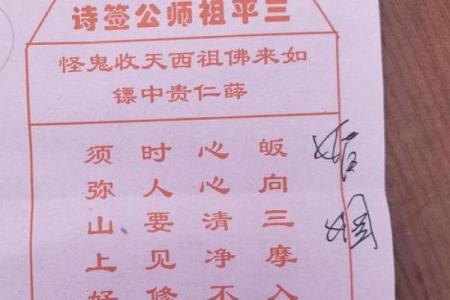 三平祖师公签诗
如来佛祖西天收鬼怪
薛仁贵中镖
皈向三摩入
心心清净不
时人要见修
须弥山上好
婚姻